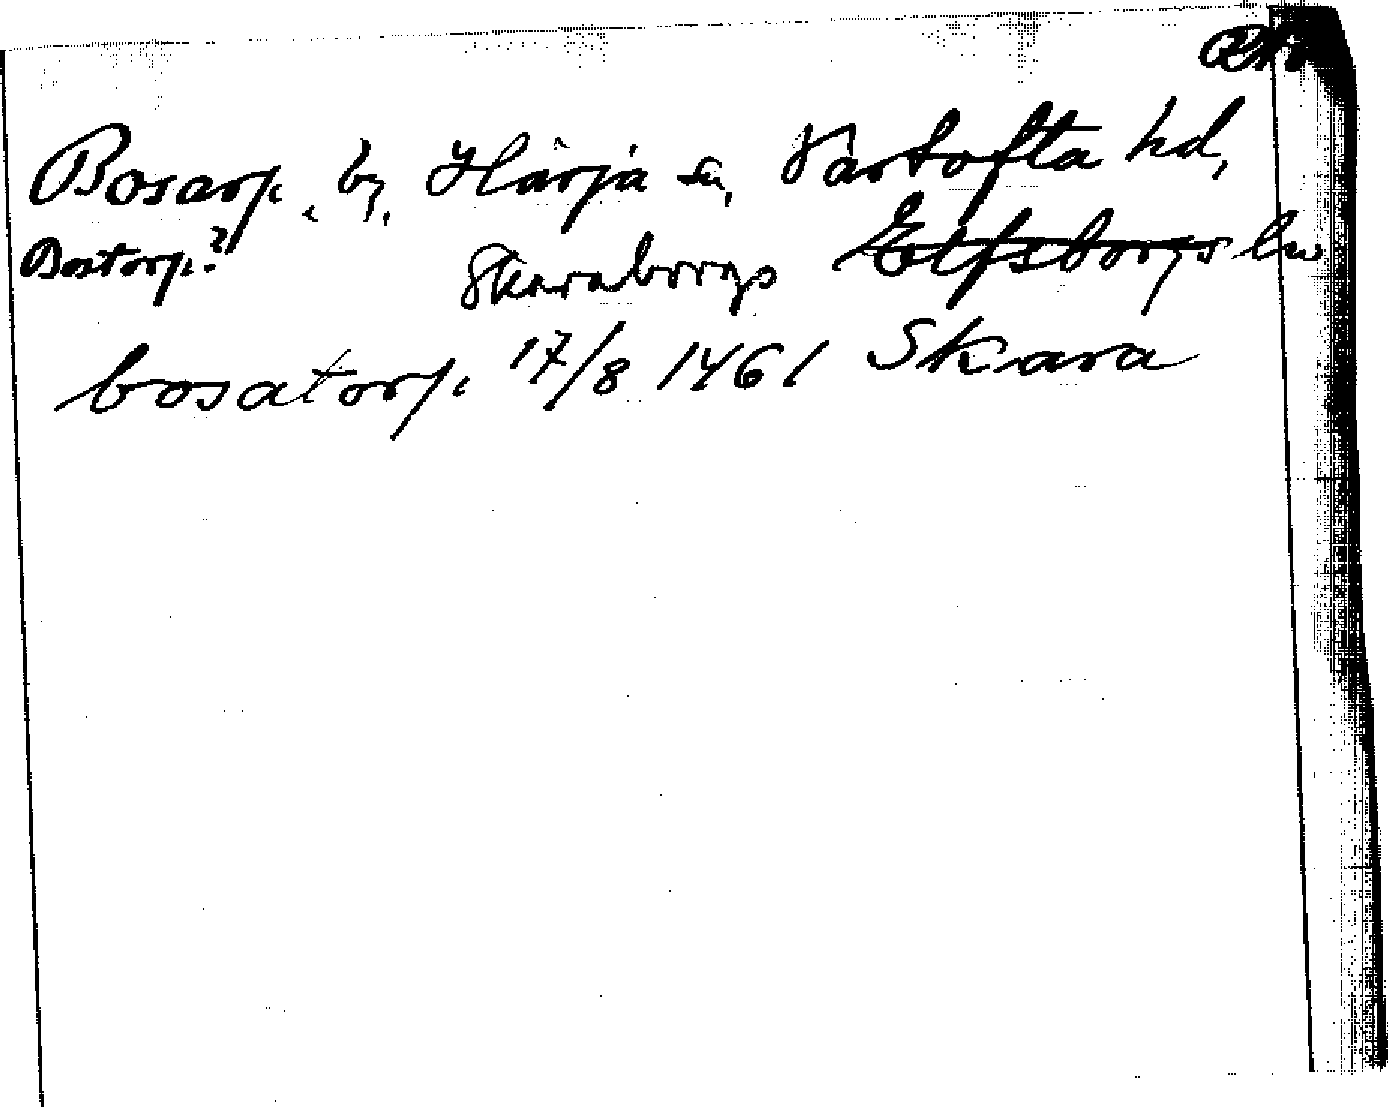 Bosarp, by, Härja sn, Vartofta hd,
Bostorp? Skaraborgs Elfsborgs län
bosatorp. 17/8 1461 Skara